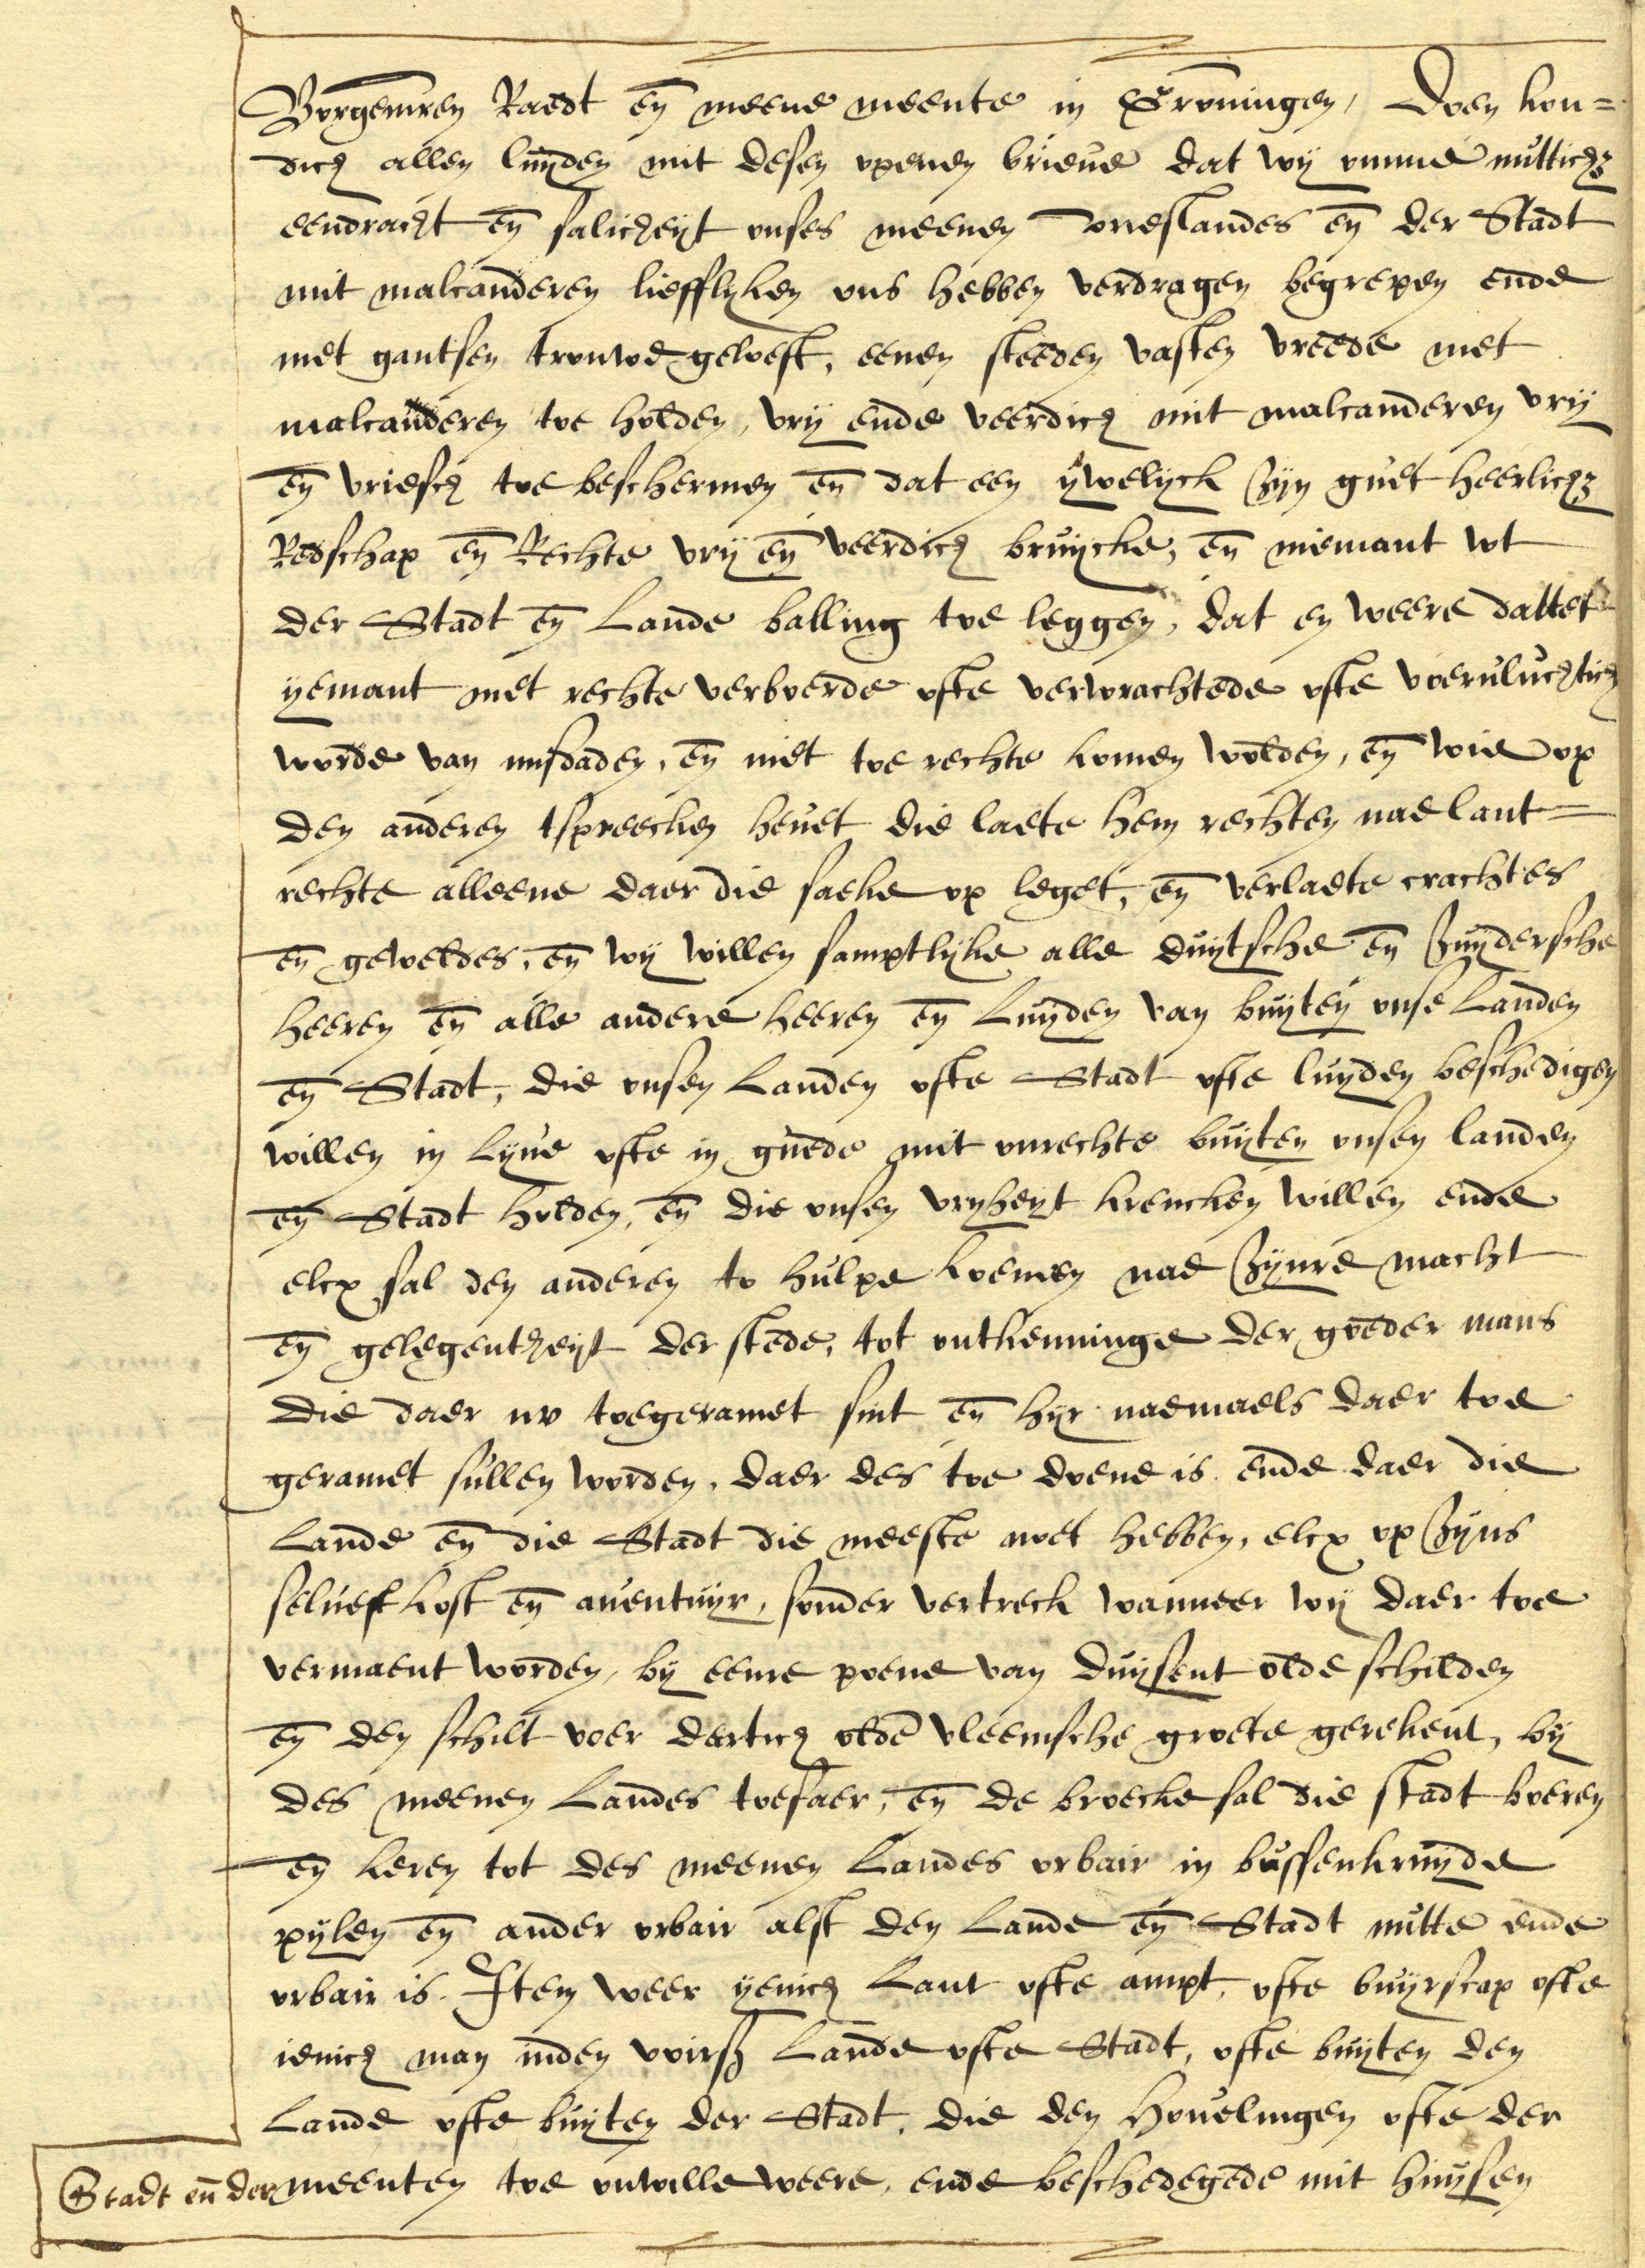 Borgemren Raedt en̄ meene meente in Gro̅ningen, Doen kon=
dich allen luÿden mit desen openen brieue dat wÿ omme nutticht
eendracht en̄ salicheÿt onses meenen Vrieslandes en̄ der Stadt
mit malcanderen liefflÿken ons hebben verdragen begrepen ende
met gantsen trouwe geloeft, eenen steeden vasten vreede met
malcanderen toe holden, vrÿ ende veerdich mit malcanderen vrÿ
en̄ vriesch toe beschermen en̄ dat een ÿwelÿck Zÿn guet heerlicht
Redschap en̄ Rechte vrÿ en̄ veerdich bruÿcke, en̄ niemant wt
der Stadt en̄ Lande balling toe leggen, dat en weere dattet
ÿemant met rechte verboerde ofte verwrachtede ofte voeruluchtich
worde van misdaden, en̄ niet toe rechte komen wolden, en̄ wie op
den anderen tspreecken heuet die laete hem rechten nae lant=
rechte alleene daer die saeke op leget, en̄ verlaete crachtes
en̄ geweldes, en̄ wÿ willen samptlÿke alle duÿtsche en̄ Zuÿdersche
heeren en̄ alle andere heeren en̄ Luÿden van buÿten onse Landen
en̄ Stadt, die onsen Landen ofte Stadt ofte luÿden beschedigen
willen in Lÿue ofte in guede mit onrechte buÿten onsen landen
en̄ Stadt holden, en̄ die onsen vrÿheÿt krencken willen ende
elcx sal den anderen to hulpe koemen nae Zÿnre macht
en̄ gelegentheÿt der stede, tot ontkenninge der goeder mans
die daer nv toegeramet sint en̄ hÿr naemaels daer toe
geramet sullen worden, daer des toe doene is ende daer die
Lande en̄ die Stadt die meeste noet hebben, elcx op Zÿns
selues kost en̄ auentuÿr, sonder vertreck wanneer wÿ daer toe
vermaent worden, bÿ eenre poene van duÿsent olde schilden
en̄ den schilt voer dertich olde vleemsche groete gerekent, bÿ
des meenen Landes toesaer, en̄ de broecke sal die stadt boeren
en̄ keren tot des meenen Landes orbair in bussenkruÿde
pÿlen en̄ ander orbair alst den Lande en̄ Stadt nutte ende
orbair is. Item weer ÿenich Lant ofte ampt, ofte buÿrscap ofte
ienich man inden voirß Lande ofte Stadt, ofte buÿten den
Lande ofte buÿten der Stadt, die den Houelingen ofte der
Stadt en̄ der meenten toe onwille weere, ende beschedegede mit huÿsen